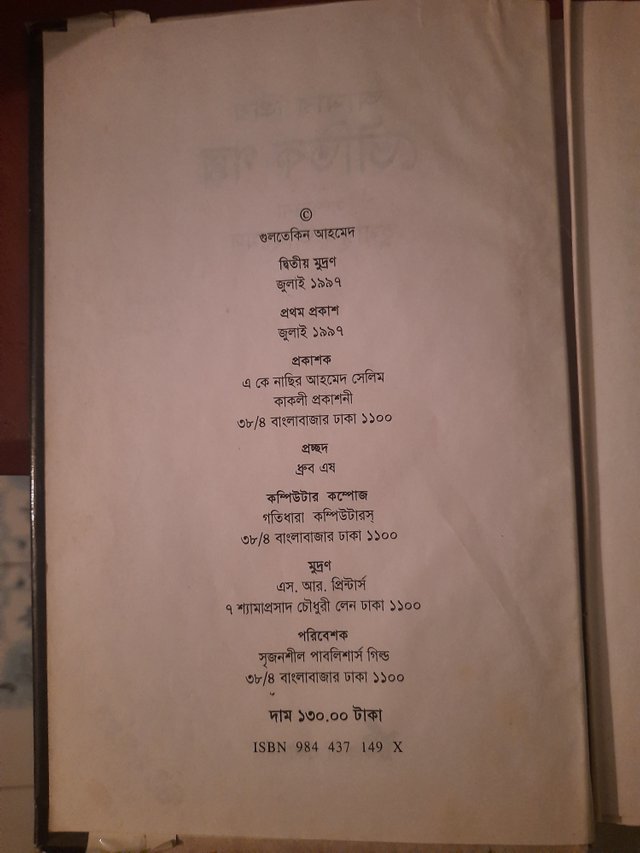 ©
গুলতেকিন আহমেদ
দ্বিতীয় মুদ্রণ
জুলাই ১৯৯৭
প্রথম প্রকাশ
জুলাই ১৯৯৭
প্রকাশক
এ কে নাছির আহমেদ সেলিম
কাকলী প্রকাশনী
৩৮/৪ বাংলাবাজার ঢাকা ১১০০
প্রচ্ছদ
ধ্রুব এষ
কম্পিউটার কম্পোজ
গতিধারা কম্পিউটারস্
৩৮/৪ বাংলাবাজার ঢাকা ১১০০
মুদ্রণ
এস. আর. প্রিন্টার্স
৭ শ্যামাপ্রসাদ চৌধুরী লেন ঢাকা ১১০০
পরিবেশক
সৃজনশীল পাবলিশার্স গিল্ড
৩৮/৪ বাংলাবাজার ঢাকা ১১০০
দাম ১৩০.০০ টাকা
ISBN 984 437 149 X